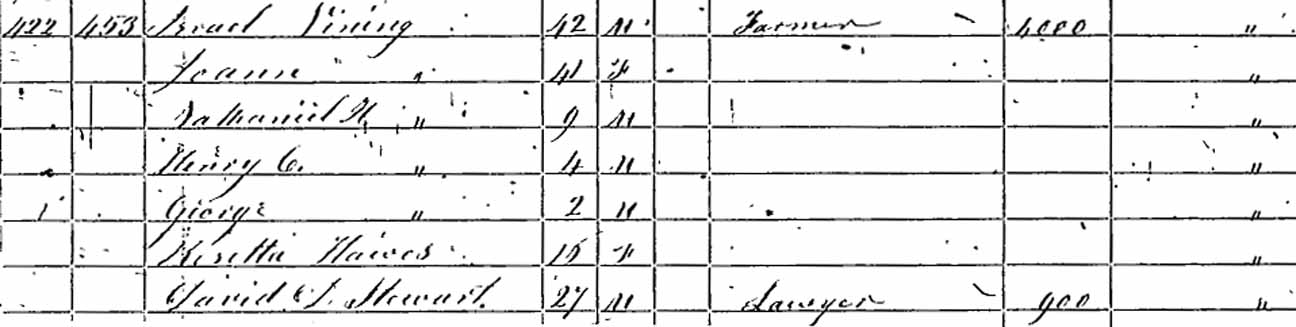 422 453 Israel Vining 42 M Farmer 4000 "
Joann " 41 F "
Nathaniel H. " 9 M "
Henry C. " 4 M "
George " 2 M "
Hawes 15 F "
David S. Stewart 27 M Lawyer 900 "